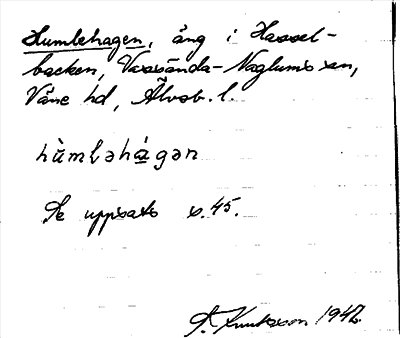 Humlehagen, äng i Hassel-
backen, Vassända-Naglums sn,
Väne hd, Älvsb. l.
hùmləhágən
Se uppsats s. 45.
A. Knutsson 1942.